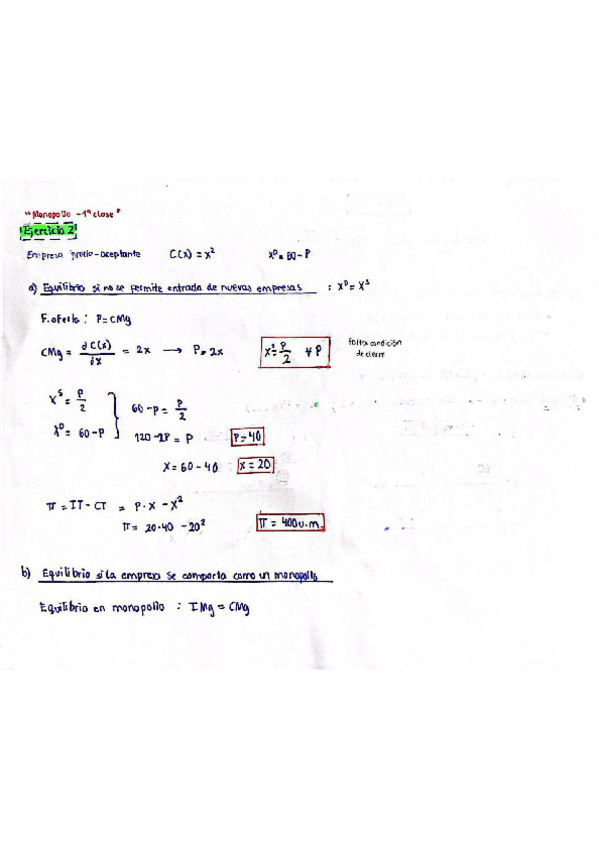 "Monopolio - 1ª clase"
Ejercicio 2
Empresa precio-aceptante C(x) = x² xᴰ = 60 - P
a) Equilibrio si no se permite entrada de nuevas empresas : xᴰ = xˢ
F. oferta : P = CMg
CMg = ∂C(x)/∂x = 2x → P = 2x xˢ = P/2 ∀ P Falta condición de cierre
xˢ = P/2
xᴰ = 60 - P } 60 - P = P/2
120 - 2P = P P = 40
x = 60 - 40 : x = 20
π = IT - CT = P · x - x²
π = 20·40 - 20² π = 400 u.m.
b) Equilibrio si la empresa se comporta como un monopolio
Equilibrio en monopolio : IMg = CMg